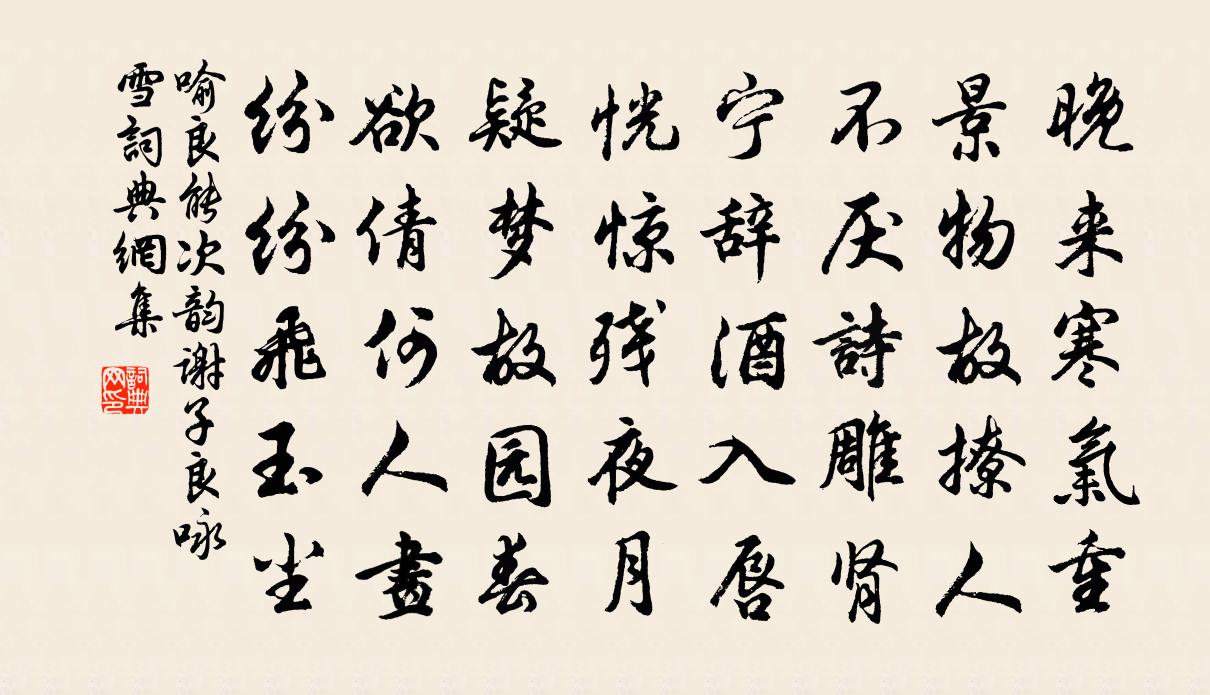 晚来寒氣重
景物故撩人
不厌詩雕肾
宁辞酒入唇
恍惊残夜月
疑梦故园春
欲倩何人畫
纷纷飛玉尘
喻良能次韵谢子良咏
雪詞典網集
詞典网印